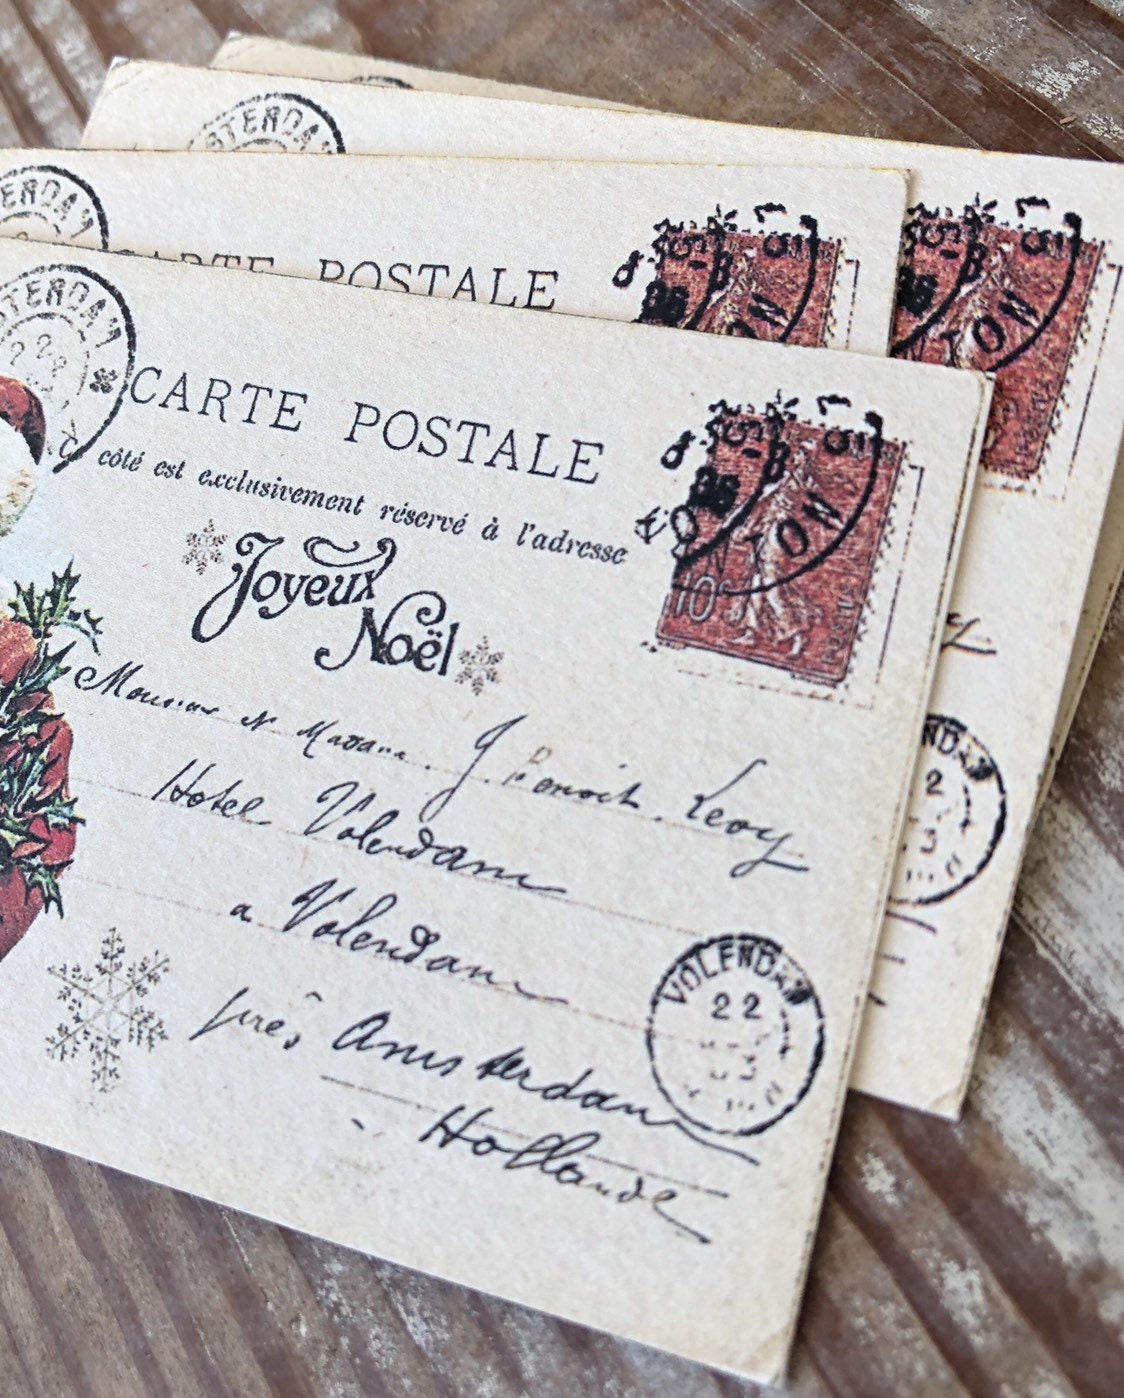 STERDAM
ERDAM
CARTE POSTALE
5 - 8
TON
5 - 8
TON
STERDAM
22
CARTE POSTALE
côté est exclusivement réservé à l'adresse
Joyeux
Noël
5 - 8
TON
10c
Monsieur N Madame J Benoit Levy
Hotel Volendam
a Volendam
près Amsterdam
Hollande
VOLENDAM
22
NDAM
2